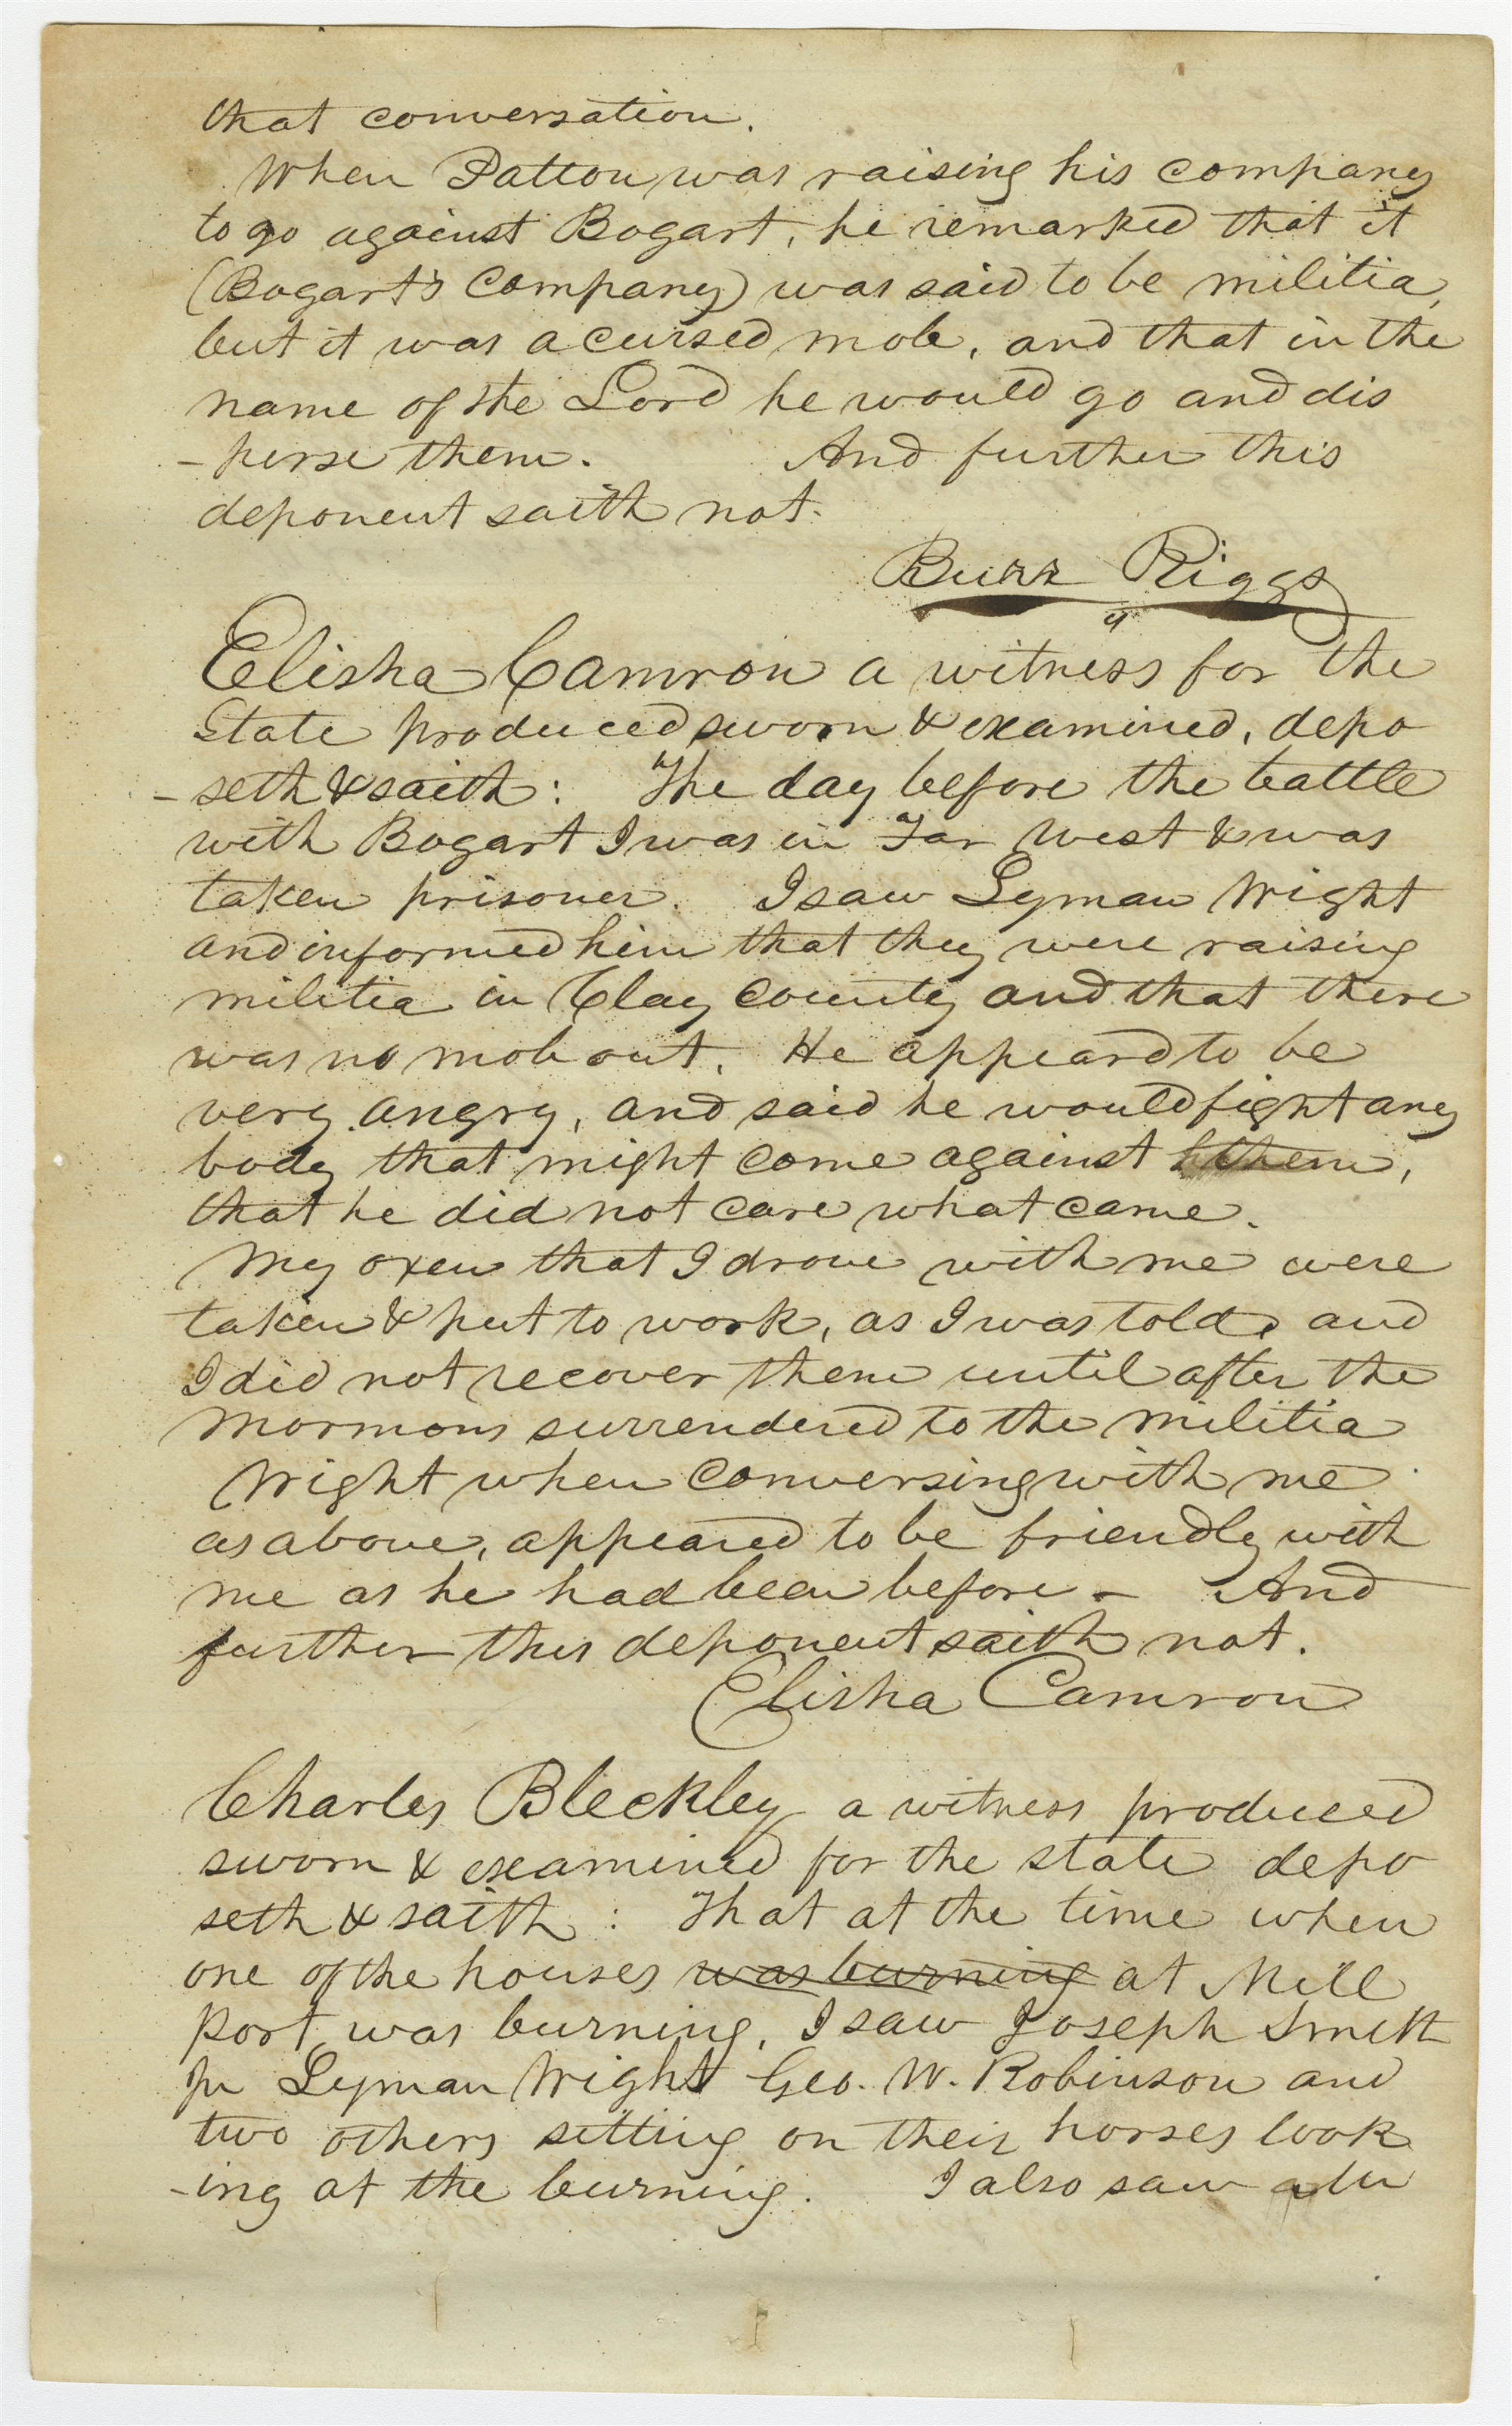 that conversation.
When Patton was raising his company
to go against Bogart, he remarked that it
(Bogart's Company) was said to be militia,
but it was a cursed mob, and that in the
name of the Lord he would go and dis
-perse them. And further this
deponent saith not.
Burr Riggs
Elisha Camron a witness for the
State produced sworn & examined, depo
-seth & saith: The day before the battle
with Bogart I was in Far West & was
taken prisoner. I saw Lyman Wight
and informed him that they were raising
militia in Clay County and that there
was no mob out. He appeard to be
very angry, and said he would fight any
body that might come against them,
that he did not care what came.
My oxen that I drove with me were
taken & put to work, as I was told, and
I did not recover them until after the
Mormons surrendered to the militia
Wright when conversing with me
as above, appeared to be friendly with
me as he had been before - And
further this deponent saith not.
Elisha Camron
Charles Bleckley a witness produced
sworn & examined for the state depo
seth & saith: That at the time when
one of the houses was burning at Mill
port was burning, I saw Joseph Smith
Jr Lyman Wight Geo. W. Robinson and
two others sitting on their horses look
-ing at the burning. I also saw